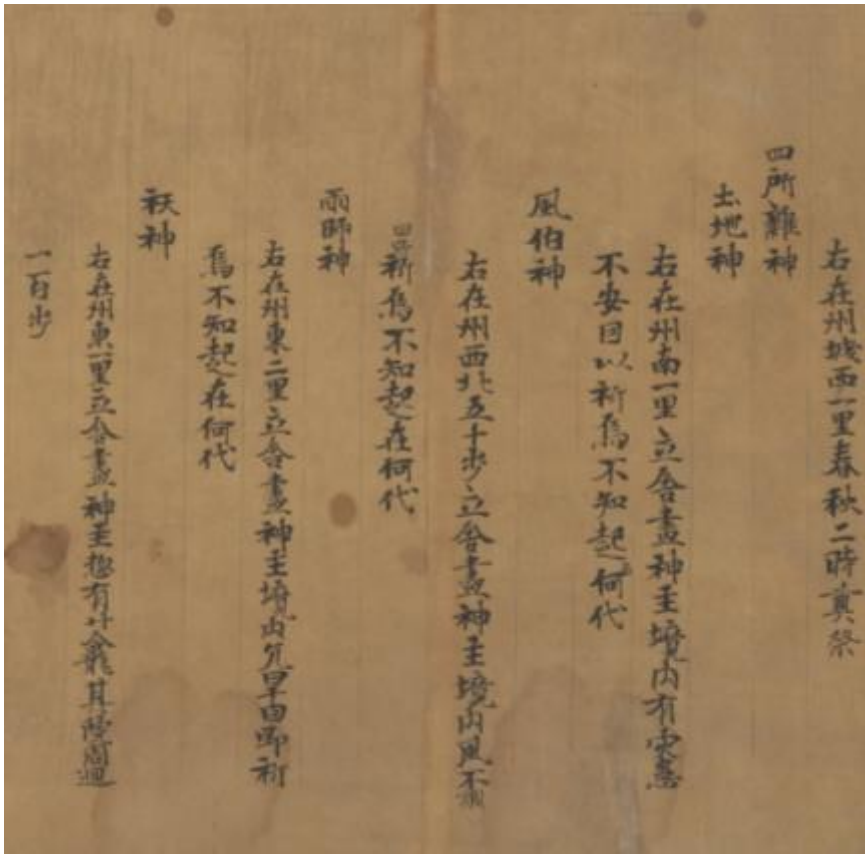 右在州城西一里春秋二時奠祭
四所雜神
土地神
右在州南一里立舍畫神主境内有灾患
不安因以祈焉不知起何代
風伯神
右在州西北五十步立舍畫神主境内風不調
因即祈焉不知起在何代
雨師神
右在州東二里立舍畫神主境内亢旱因即祈
焉不知起在何代
祆神
右在州東一里立舍畫神主揔有廿龕其院周迴
一百步